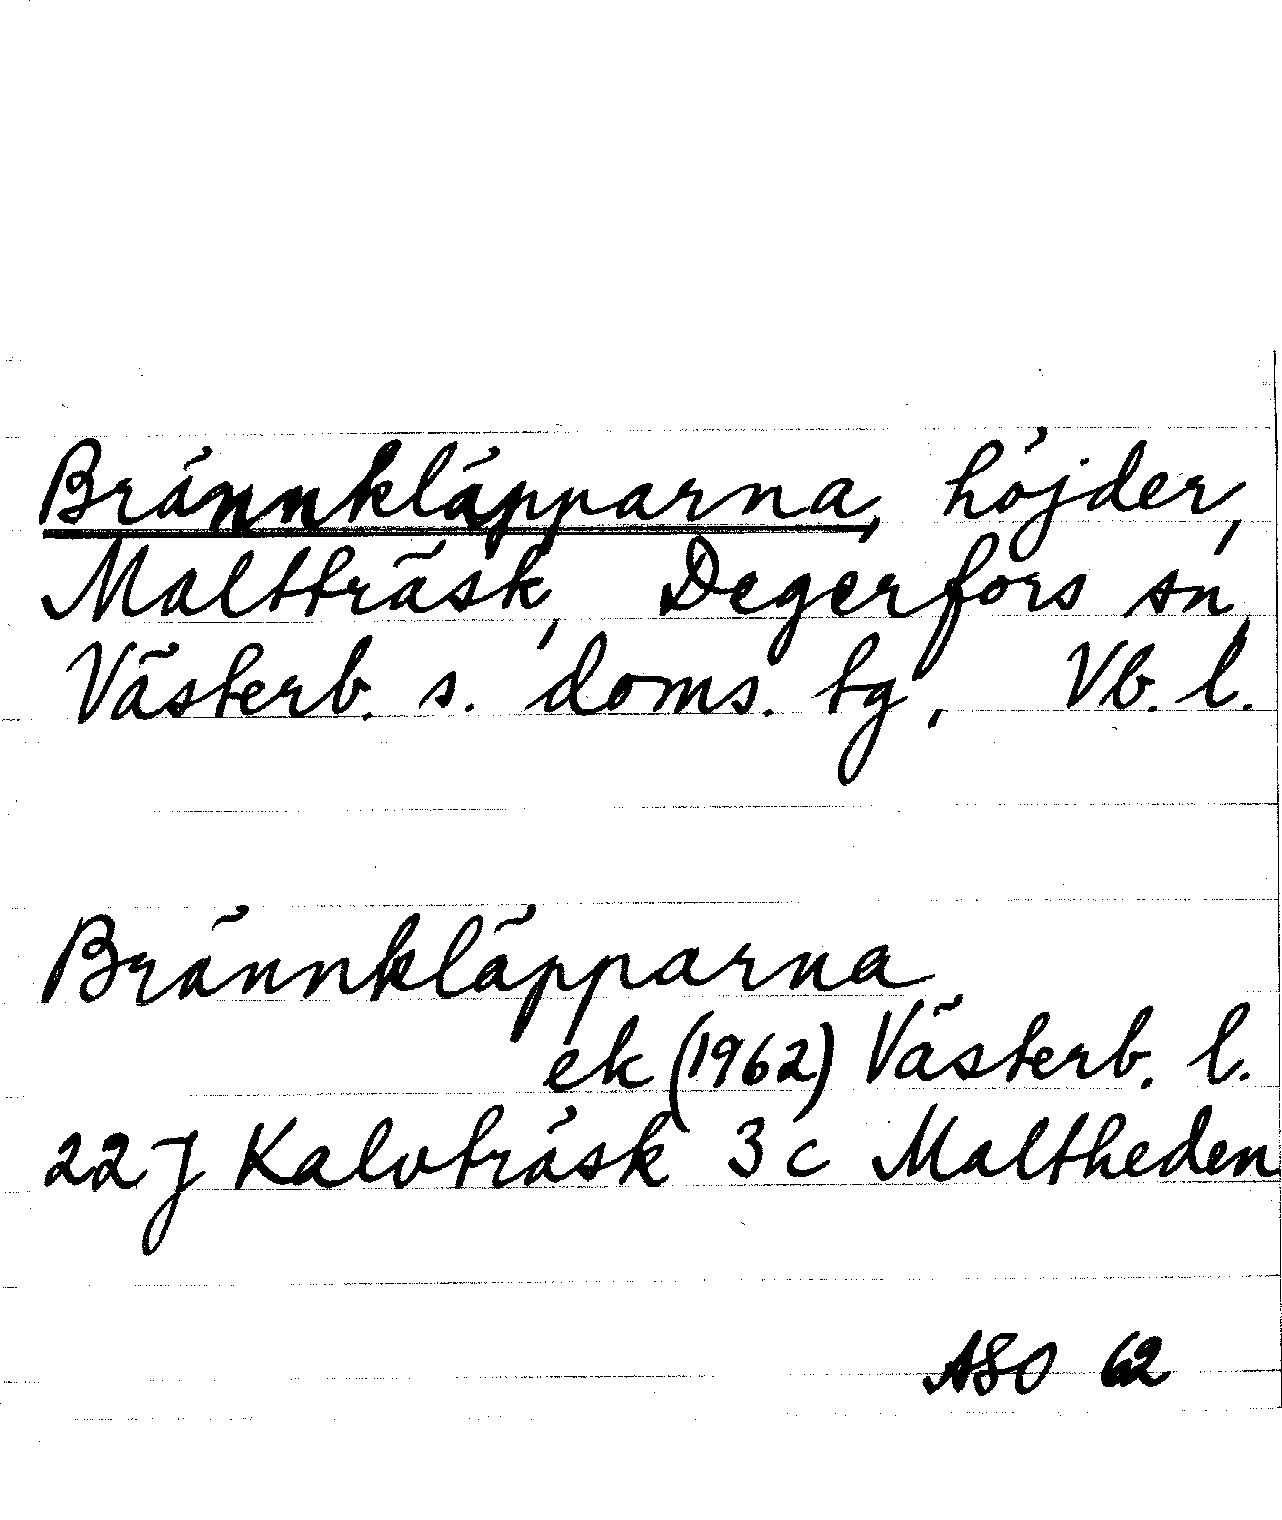 Brännkläpparna, höjder,
Maltträsk, Degerfors sn,
Västerb. s. doms. tg, Vb. l.
Brännkläpparna
ek (1962) Västerb. l.
22J Kalvträsk 3c Maltheden
ASO 62